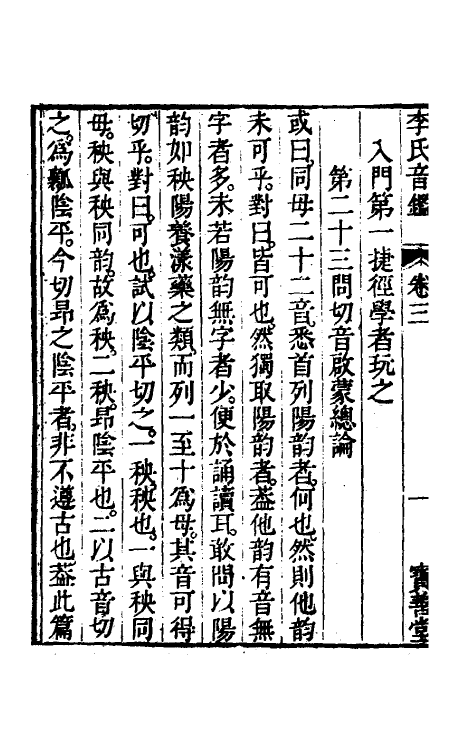 李氏音鑑 卷三 一 寳善堂
入門第一捷徑學者玩之
第二十三問切音啟蒙總論
或曰同母二十二音悉首列陽韵者何也然則他韵
未可乎對曰皆可也然獨取陽韵者葢他韵有音無
字者多未若陽韵無字者少便於誦讀耳敢問以陽
韵如秧陽養漾藥之類而列一至十為母其音可得
切乎對曰可也試以陰平切之一秧秧也一與秧同
母秧與秧同韵故為秧二秧昂陰平也二以古音切
之為瓤陰平今切昂之陰平者非不遵古也葢此篇